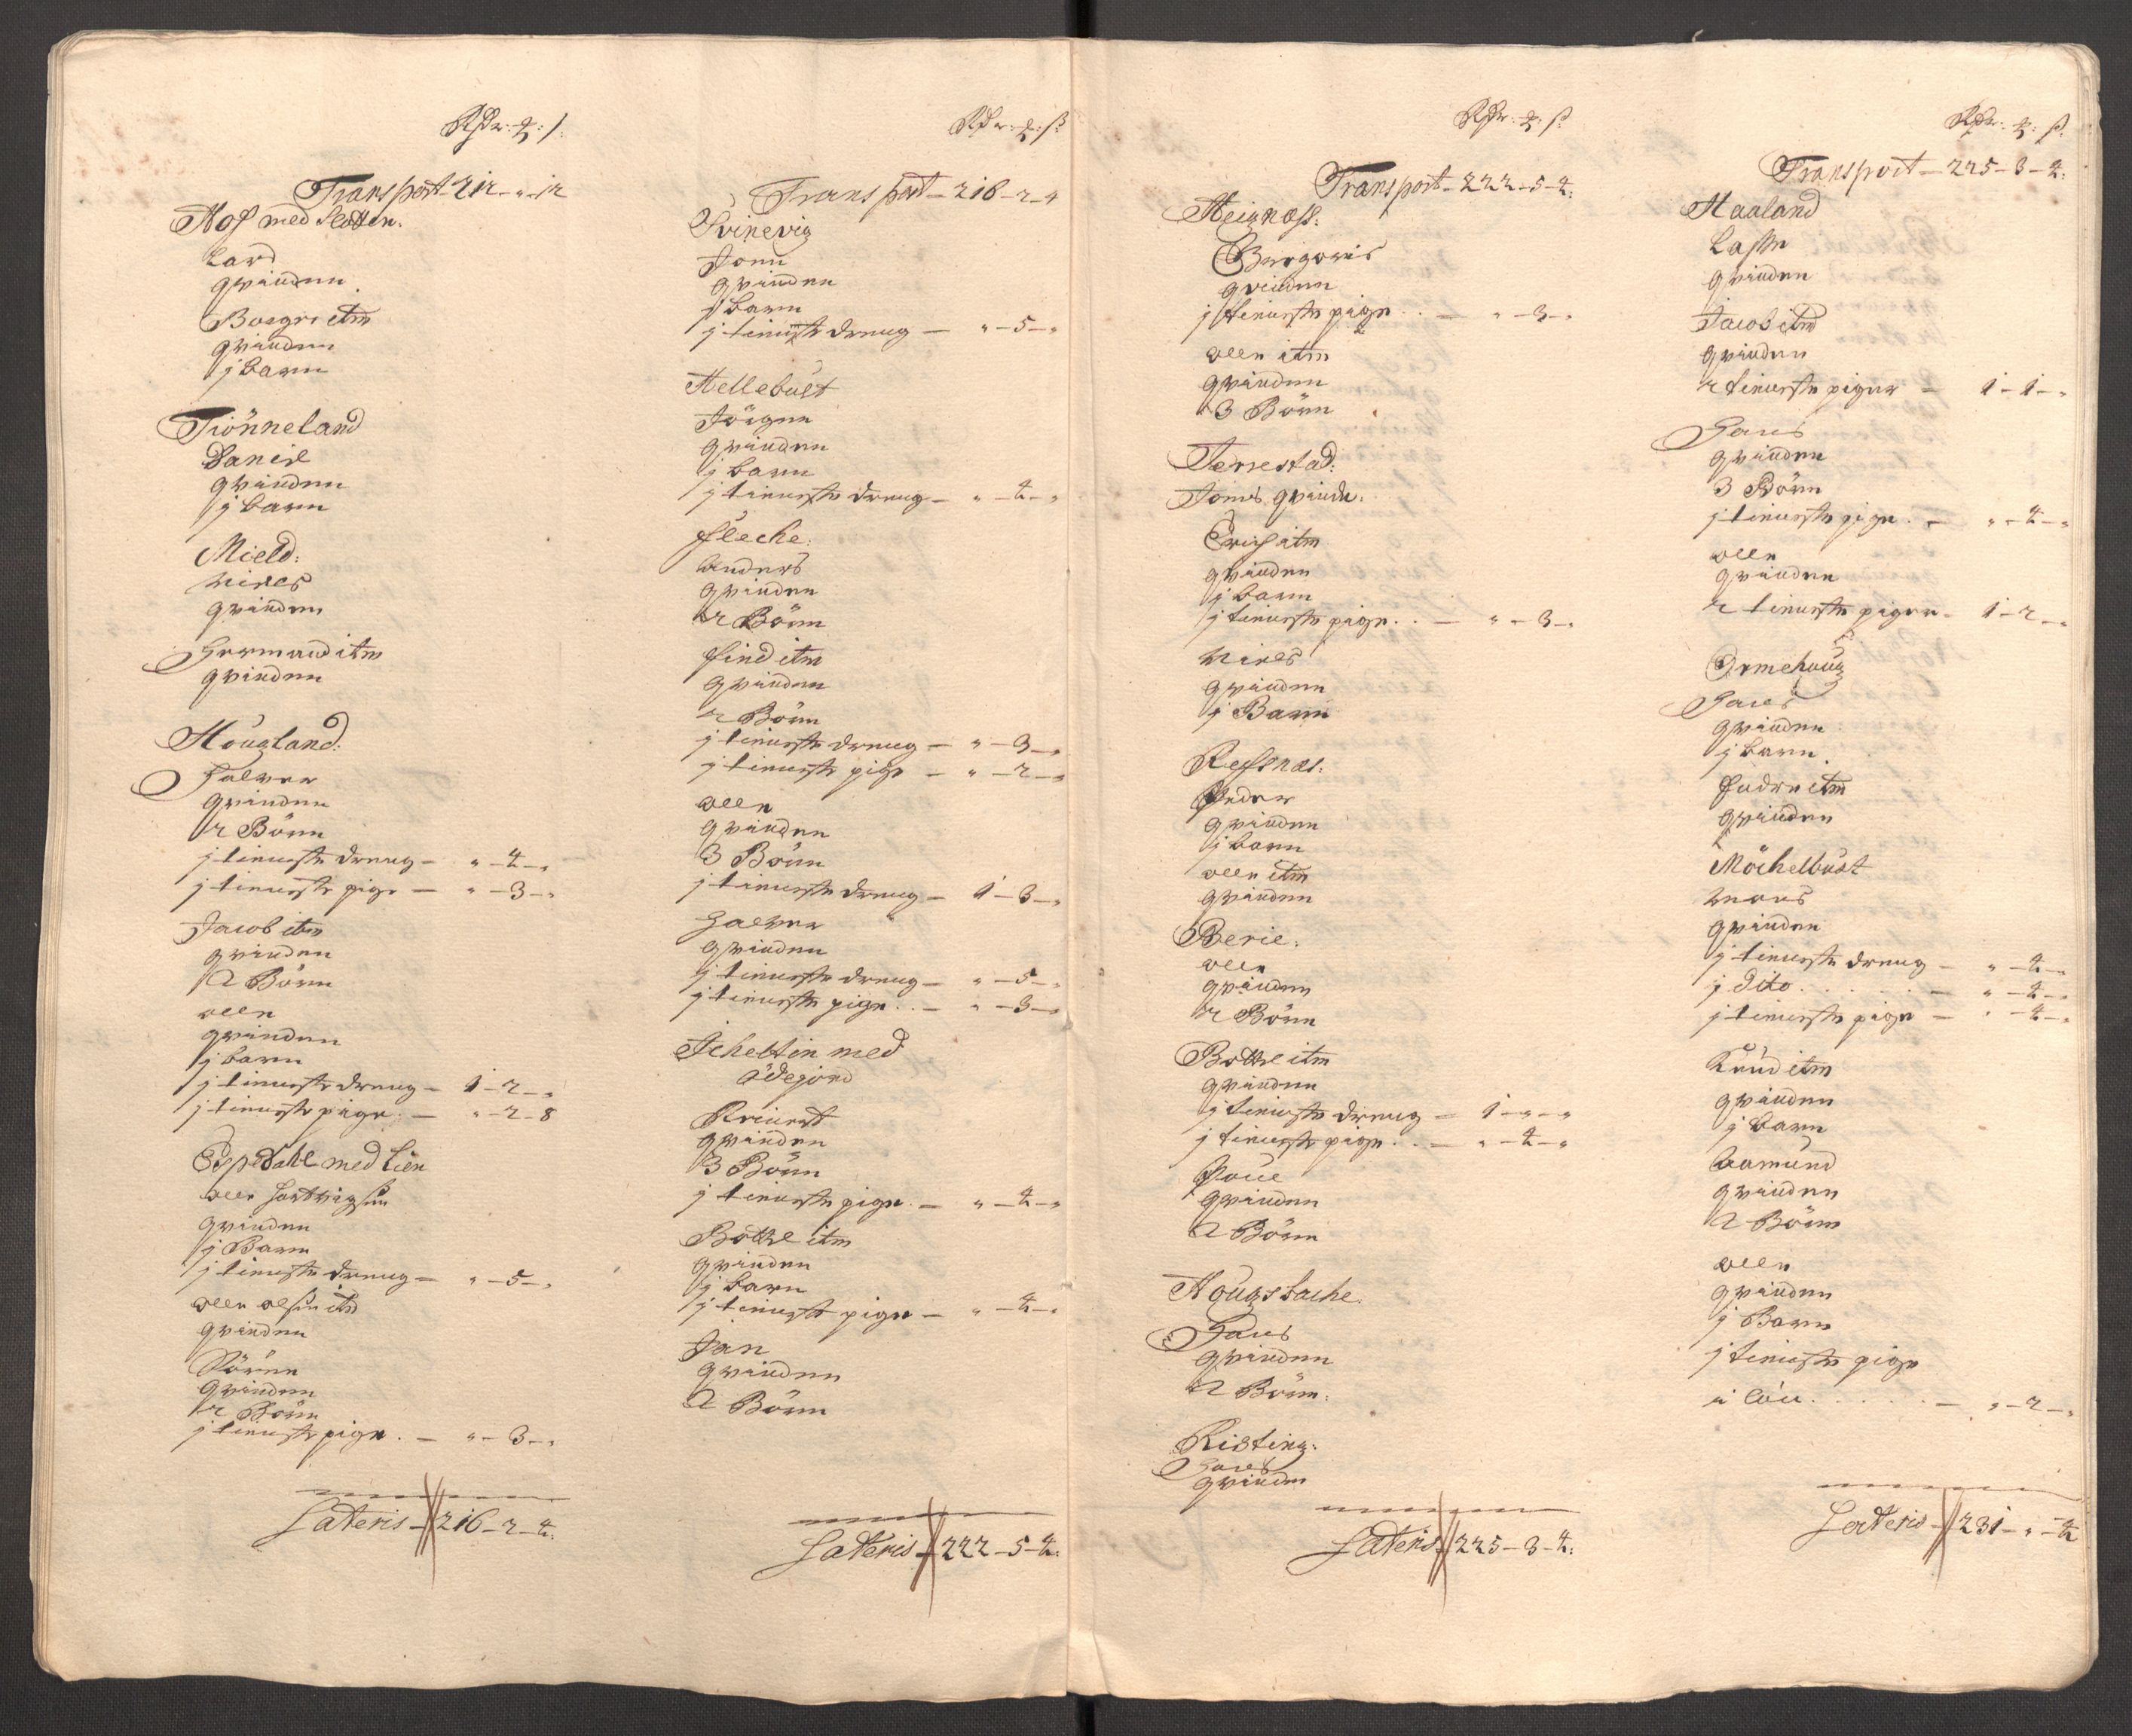 Rdr: ꝝ: ß:
Transport - 212 - " - 12
Hof med Slotten:
Lard
qvinden
Borgri itm
qvinden
j barn
Tiönneland
Daniel
qvinden
j barn
Mield:
Niels
qvinden
Hermand itm
qvinden
Hougland:
Halver
qvinden
2 Börn
j tieneste dreng - " - 4 - "
j tieneste pige - " - 3 - "
Jacob itm
qvinden
2 Börn
olle
qvinden
j barn
j tieneste dreng - 1 - 2 - "
j tieneste pige - " - 2 - 8
Espedahl med Lien
olle Hartvigsen
qvinden
j Barn
j tieneste dreng - " - 5 - "
olle olsen itm
qvinden
Sören
qvinden
2 Börn
j tieneste pige - " - 3 - "
Lateris - 216 - 2 - 4:
Rdr: ꝝ: ß:
Transport - 216 - 2 - 4
Svinevig
Jonn
qvinden
j barn
j tieneste dreng - " - 5 - "
Mellebust
Jörgen
qvinden
j barn
j tieneste dreng - " - 4 - "
Fleche:
anders
qvinden
2 Börn
find itm
qvinden
2 Börn
j tieneste dreng - " - 3 - "
j tieneste pige - " - 2 - "
olle
qvinden
3 Börn
j tieneste dreng - 1 - 3 - "
Halver
qvinden
j tieneste dreng - " - 5 - "
j tieneste pige - " - 3 - "
Scheltin med
ödegjord
Reinert
qvinden
3 Börn
j tieneste pige - " - 4 - "
Bottel itm
qvinden
j barn
j tieneste pige - " - 4 - "
Jan
qvinden
2 Börn
Lateris - 222 - 5 - 4:
Rdr: ꝝ: ß:
Transport - 222 - 5 - 4:
Meignoss:
Gregoris
qvinden
j tieneste pige - " - 3 - "
olle itm
qvinden
3 Börn
Ternestad:
Joens qvinde:
Erich itm
qvinden
j barn
j tieneste pige - " - 3 - "
Niels
qvinden
j Barn
Refsnes:
Peder
qvinden
j barn
olle itm
qvinden
Berie:
olle
qvinden
2 Börn
Bottel itm
qvinden
j tieneste dreng - 1 - " - "
j tieneste pige - " - 4 - "
Poul
qvinden
2 Börn
Hougsbache
Hans
qvinden
2 Börn:
Risting:
Hans
qvinden
Lateris 225 - 3 - 4:
Rdr: ꝝ: ß:
Transport - 225 - 3 - 4:
Haaland
Lasse
qvinden
Jacob itm
qvinden
2 tieneste piger - 1 - 1 - "
Hans
qvinden
3 Börn
j tieneste pige - " - 4 - "
olle
qvinden
2 tieneste piger - 1 - 2 - "
Ormehoug
Hans
qvinden
j barn
Peder itm
qvinden
Möchelbust
Mons
qvinden
j tieneste dreng - " - 4 - "
j dito - " - 4 - "
j tieneste pige - " - 4 - "
Knud itm
qvinden
j barn
aamund
qvinden
2 Börn
olle
qvinden
j Barn
j tieneste pige
i lön - " - 2 - "
Lateris - 231 - " - 4